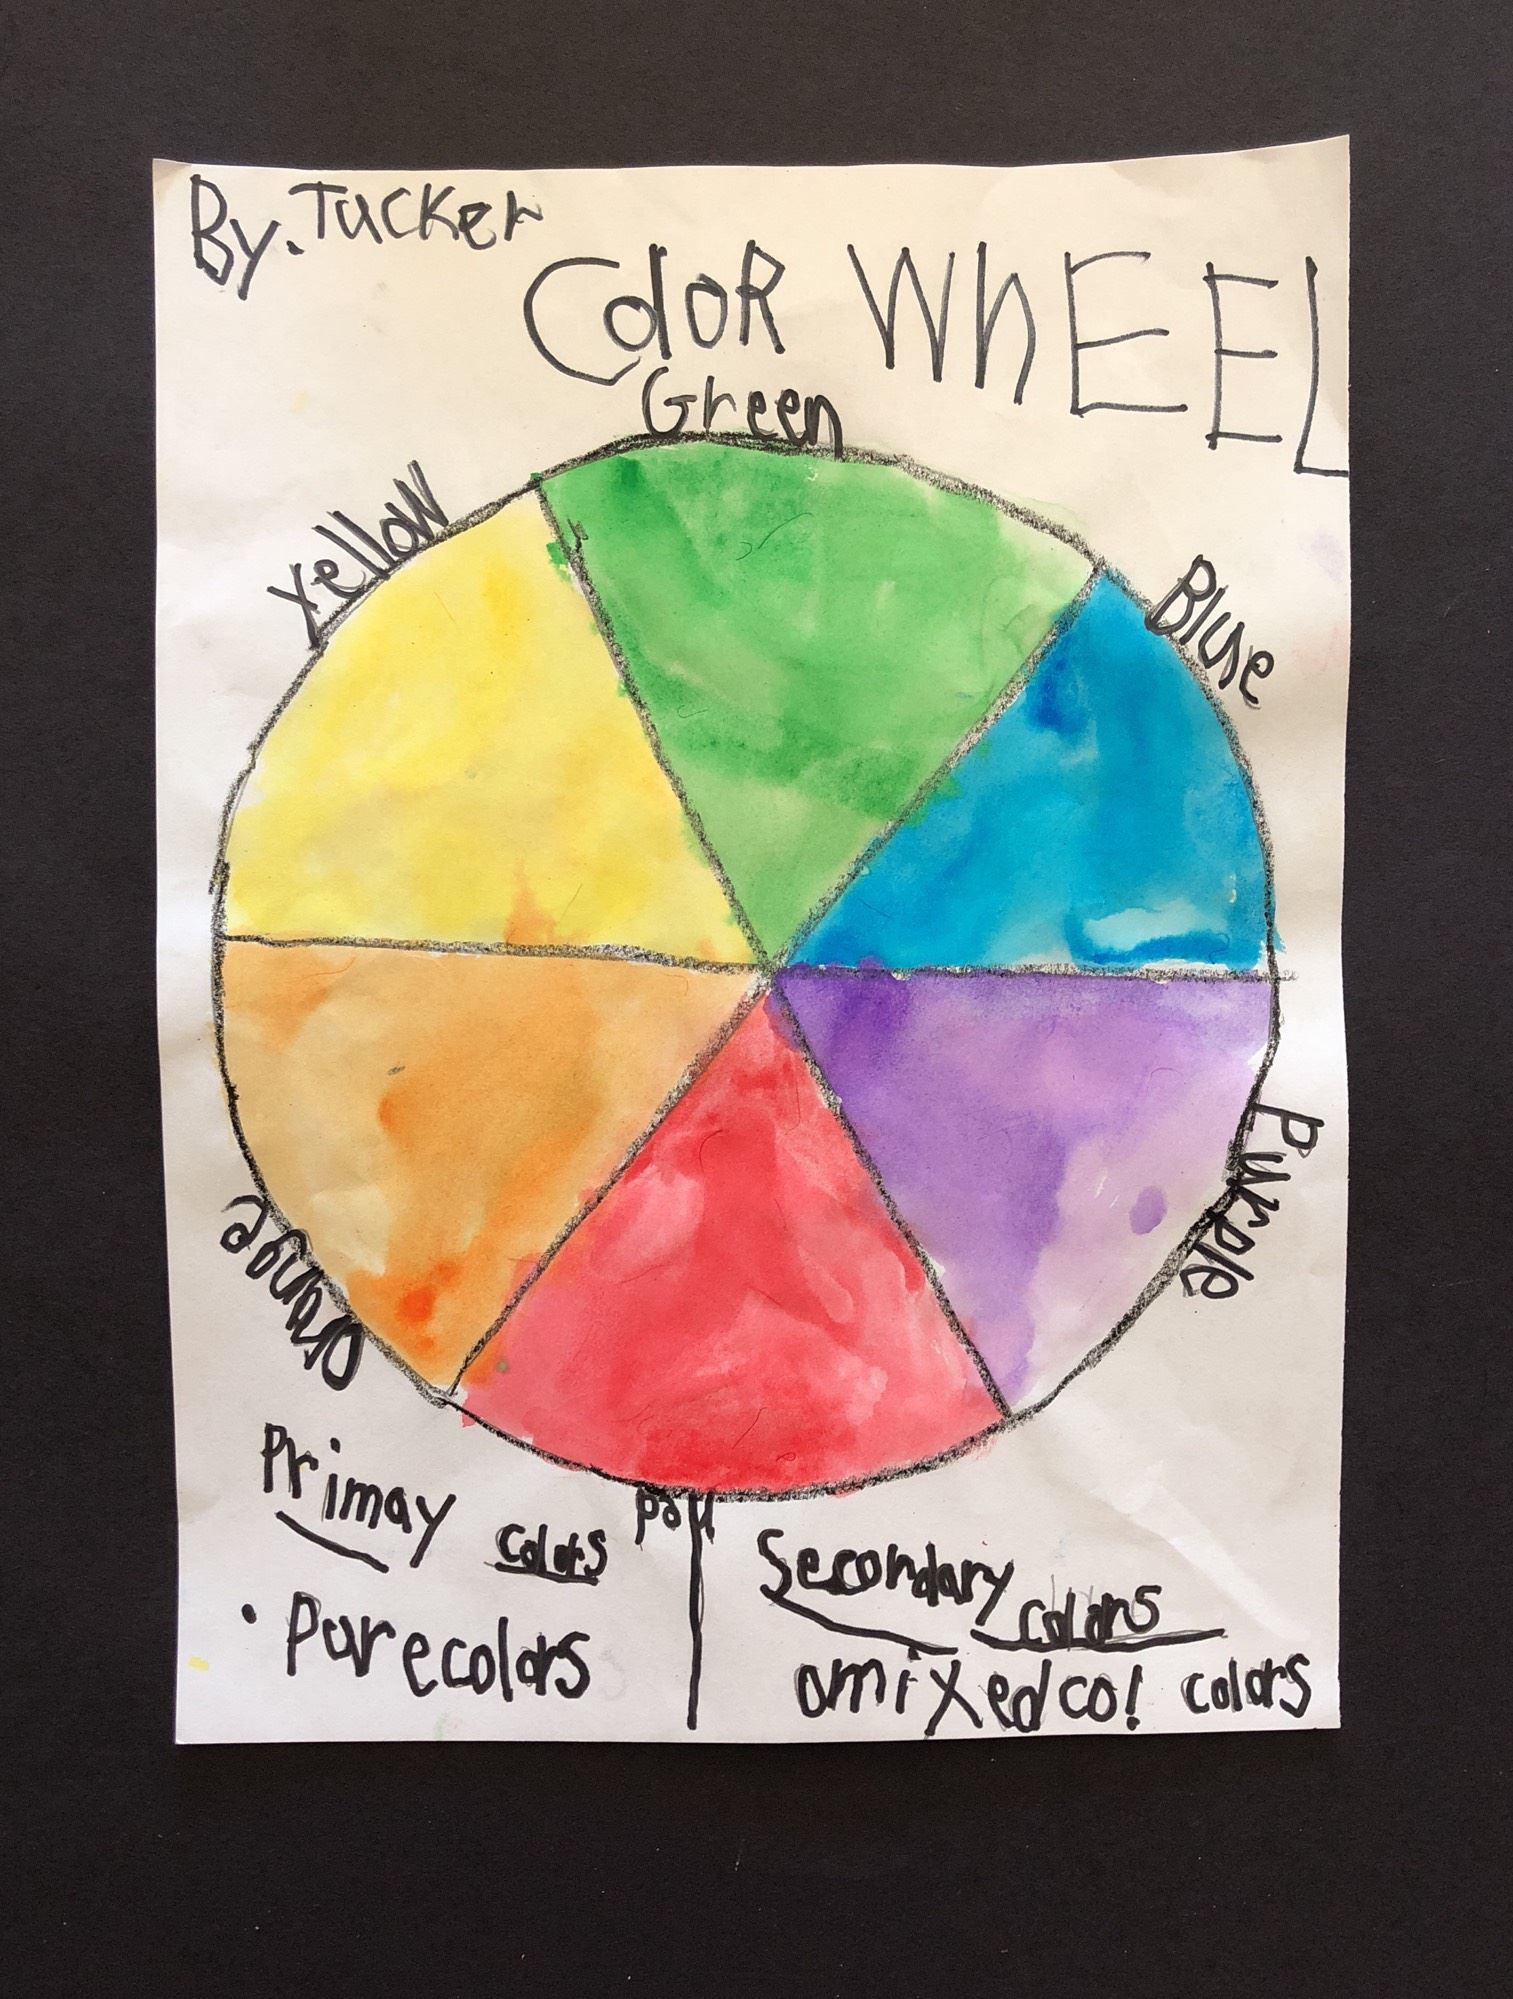 By. Tucker
Color WhEEL
Green
Yellow
Blue
Purple
Orange
Red
Primay colors
Secondary colors
• Pure colors
amixed co! colors